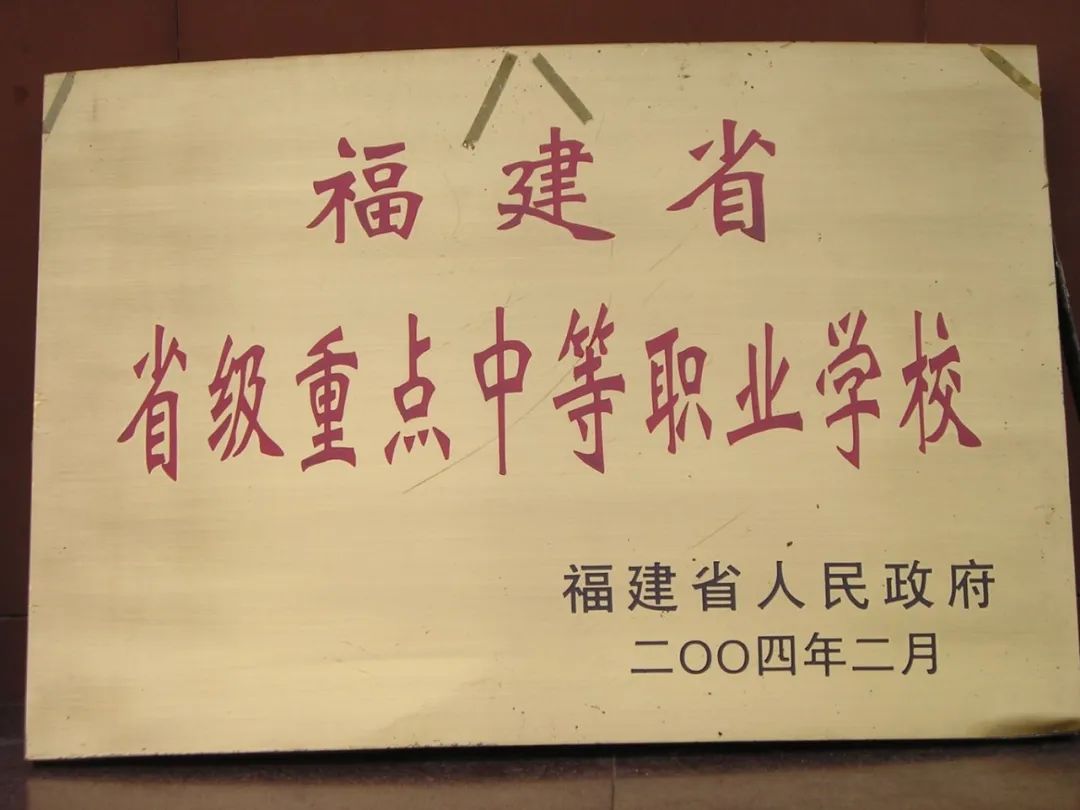 福建省
省级重点中等职业学校
福建省人民政府
二〇〇四年二月